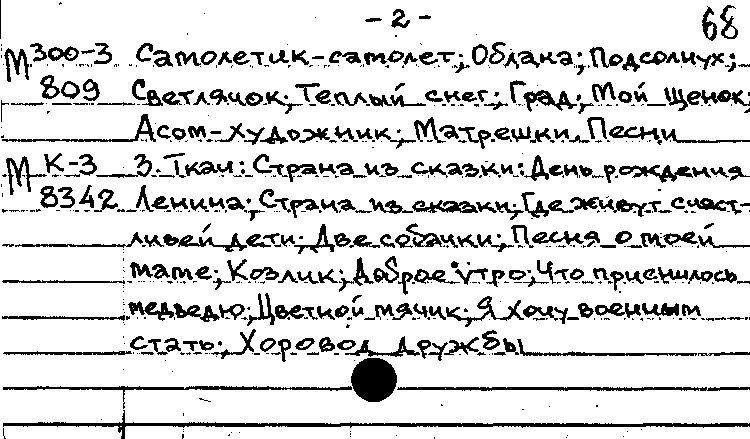 - 2 - 68
М 300-3 Самолетик-самолет; Облака; Подсолнух;
809 Светлячок; Теплый снег; Град; Мой щенок;
Асом-художник; Матрешки. Песни
М К-3 З. Ткач: Страна из сказки: День рождения
8342 Ленина; Страна из сказки; Где живут счаст-
ливей дети; Две собачки; Песня о моей
маме; Козлик; Доброе утро; Что приснилось
медведю; Цветной мячик; Я хочу военным
стать; Хоровод дружбы